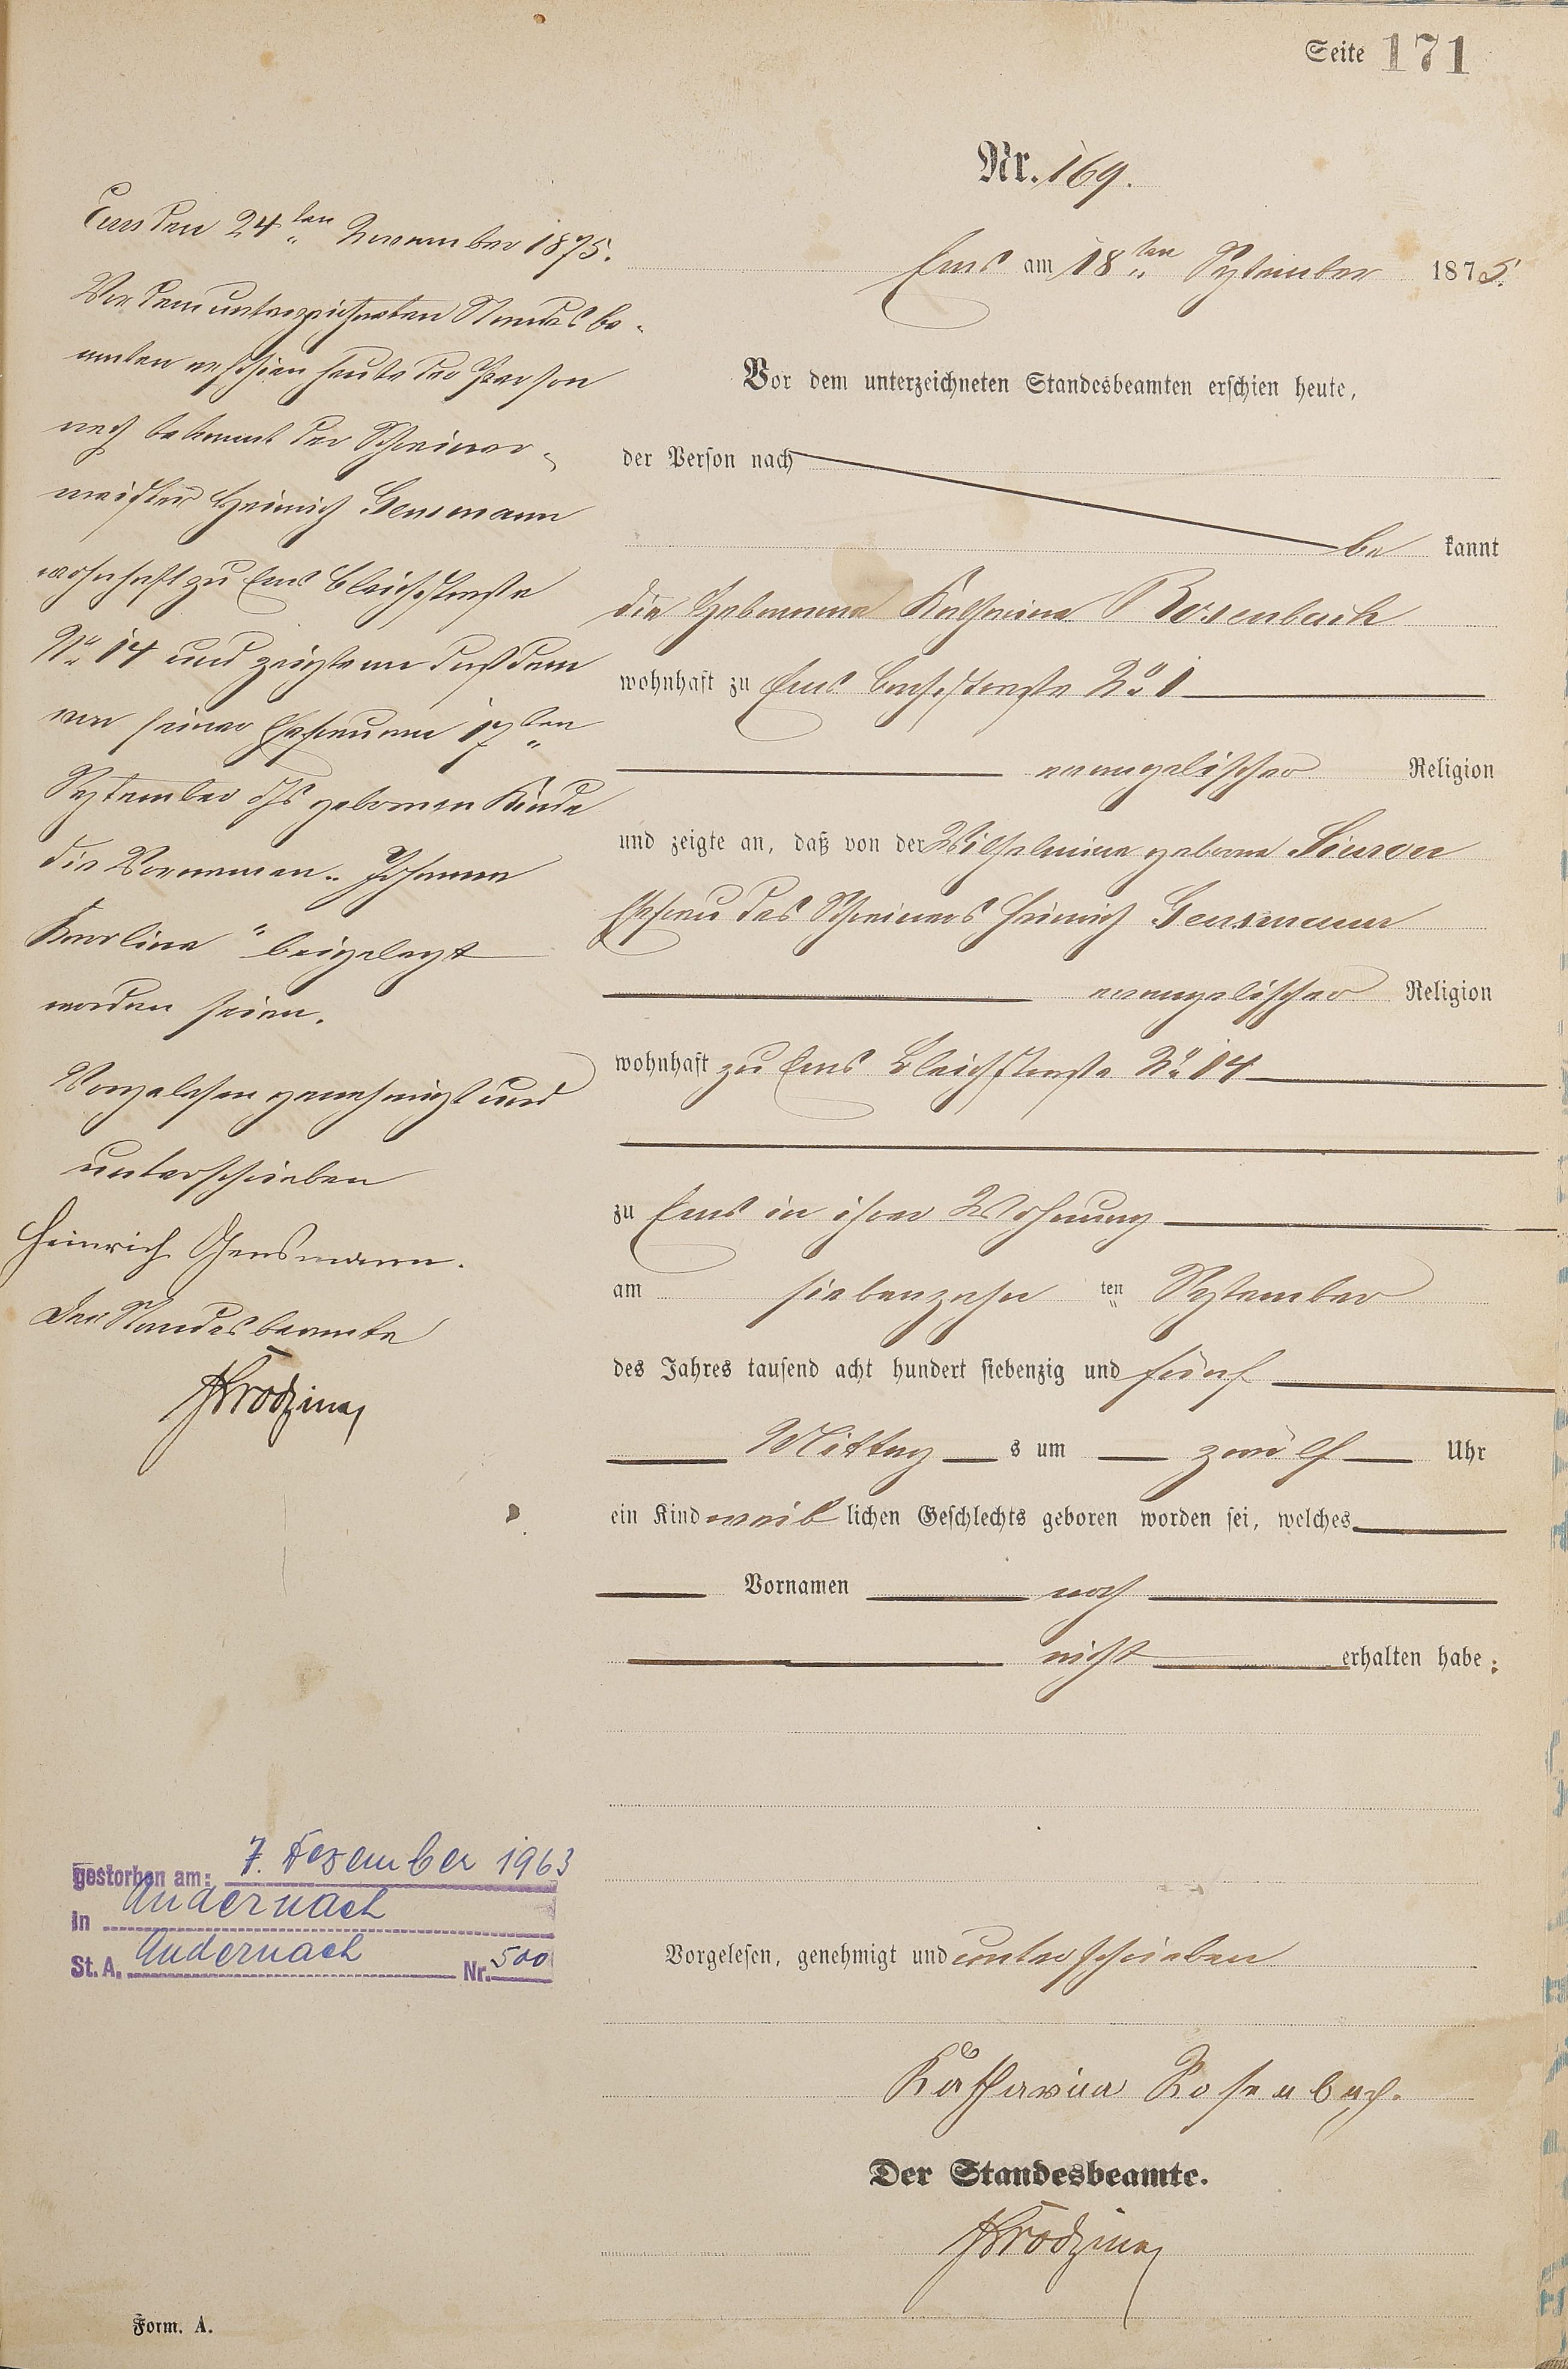 Seite 171
Nr. 169.
Ems am 18ten September 1875.
Vor dem unterzeichneten Standesbeamten erschien heute,
der Person nach
be kannt
die Hebamme Katharina Rosenbach
wohnhaft zu Ems Bachstraße No 1
evangelischer Religion
und zeigte an, daß von der Wilhelmine geborne
Ehefrau des Schreiners Heinrich Gensmann
evangelischer Religion
wohnhaft zu Ems Bleichstraße No 14
zu Ems in ihrer Wohnung
am siebenzehn ten September
des Jahres tausend acht hundert siebenzig und fünf
Mittag s um zwölf Uhr
ein Kind weib lichen Geschlechts geboren worden sei, welches
Vornamen noch
nicht erhalten habe:
Vorgelesen, genehmigt und unterschrieben
Katharina Rosenbach.
Der Standesbeamte.
Ems den 24ten November 1875.
Vor dem unterzeichneten Standesbe-
amten erschien heute der Person
nach bekannt der Schreiner-
meister Heinrich Gensmann
wohnhaft zu Ems Bleichstraße
No 14 und zeigte an daß dem
von seiner Ehefrau am 17ten
September dJs gebornen Kinde
die Vornamen „Johanna
Karolina" beigelegt
worden seien.
Vorgelesen genehmigt und
unterschrieben
Heinrich Gensmann.
Der Standesbeamte
gestorben am: 7. Dezember 1963
in Andernach
St. A. Andernach Nr. 500
Form. A.